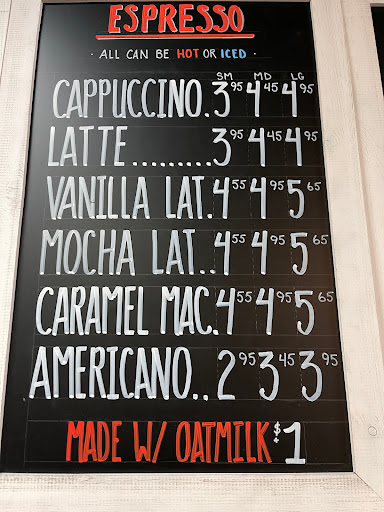 ESPRESSO
· ALL CAN BE HOT OR ICED ·
SM MD LG
CAPPUCCINO. 3.95 4.45 4.95
LATTE......... 3.95 4.45 4.95
VANILLA LAT. 4.55 4.95 5.65
MOCHA LAT.. 4.55 4.95 5.65
CARAMEL MAC. 4.55 4.95 5.65
AMERICANO.. 2.95 3.45 3.95
MADE W/ OATMILK $1